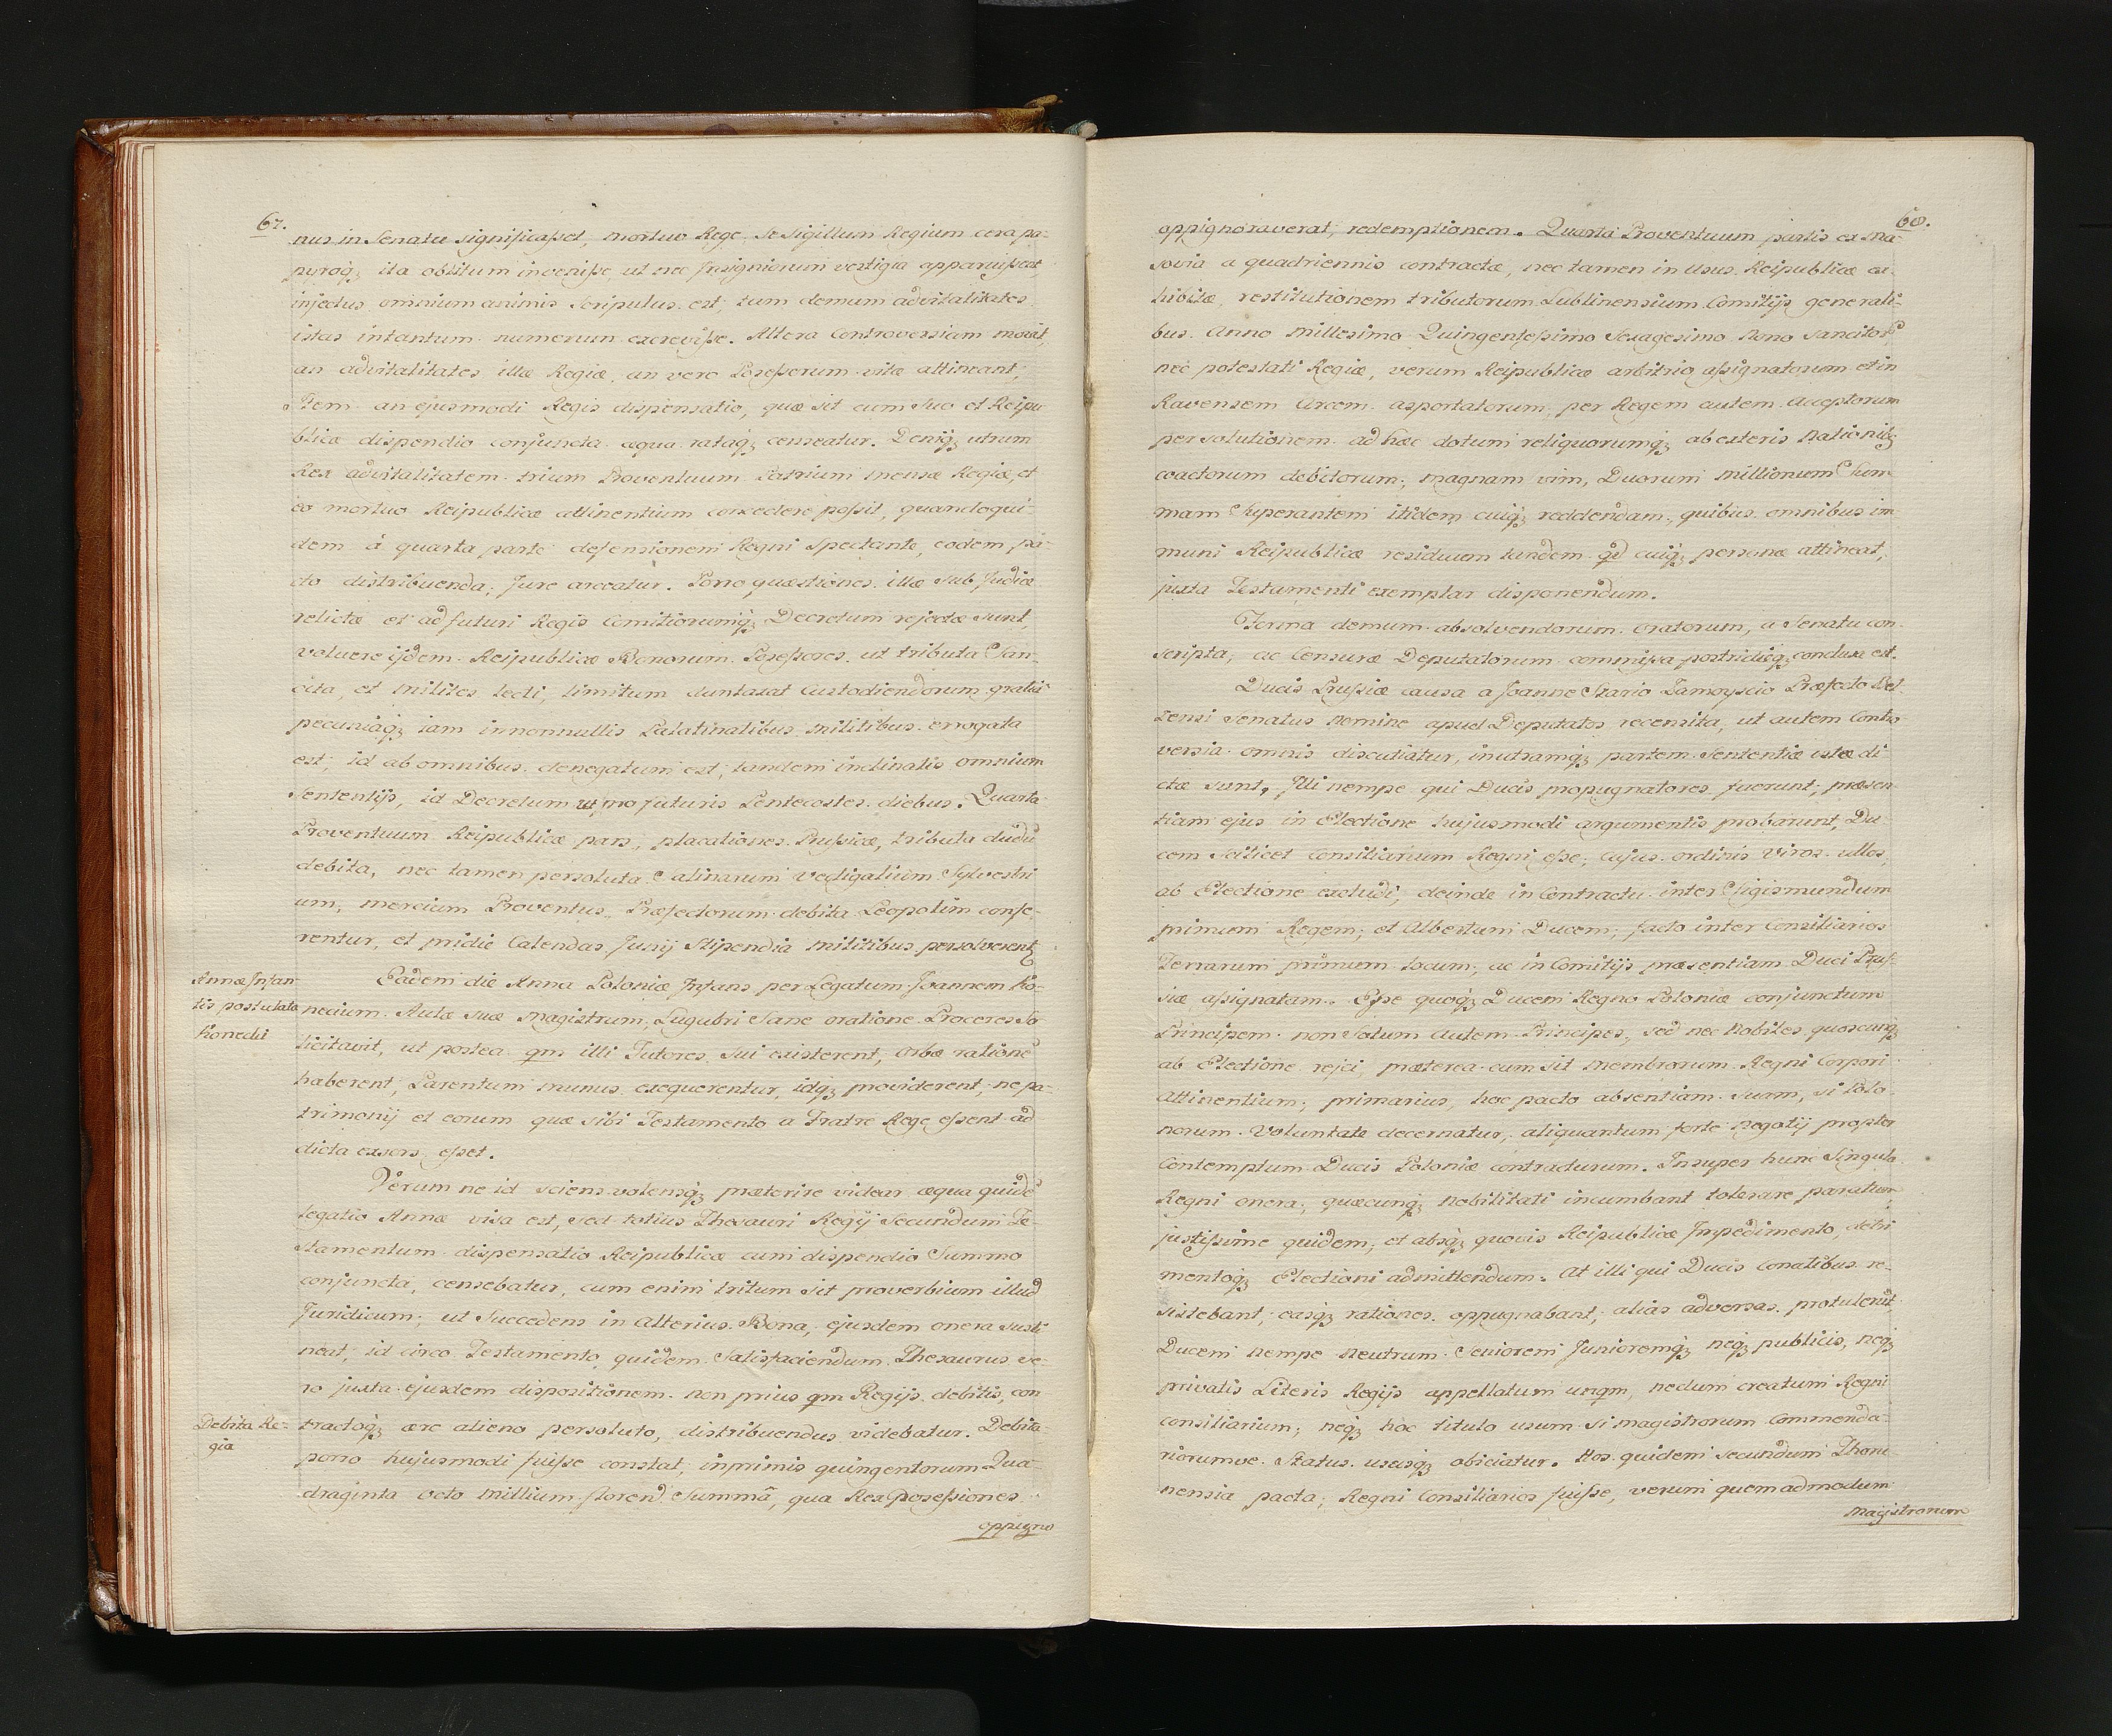 67.
nus in Senatu significasset, mortuo Rege, Se Sigillum Regium cera pa-
pyroq; ita oblitum invenisse ut nec Insigniorum vestigia apparuissent,
injectus omnium animis scripulus est, tum demum advitalitates
istas intantum numerum excrevisse. Altera Controversiam movit,
an advitalitates illæ Regiæ, an vero Possessorum vitæ attineant;
Item an ejusmodi Regis dispensatio, quæ sit cum suo et Reipu
blicæ dispendio conjuncta æqua rataq; censeatur. Deniq; utrum
Rex advitalitatem trium Proventuum Patrium mensæ Regiæ, et
eo mortuo Reipublicæ attinentium concedere possit, quandoqui-
dem á quarta parte defensionem Regni Spectante, eodem pa-
cto distribuenda; Jure arceatur. Porro quæstiones illæ sub Judice
relictæ et ad futuri Regis Comitiorumq; Decretum rejectæ sunt,
voluere ijdem Reipublicæ Bonorum Possessores ut tributa San-
cita, et milites lecti, limitum duntaxat Custodiendorum gratia
pecuniaq; iam innonnullis Palatinatibus militibus errogata
est; id ab omnibus denegatum est; tandem inclinatis omnium
Sententijs, id Decretum ut pro futuris Pentecostes diebus. Quarta
Proventuum Reipublicæ pars, placationes Prussicæ, tributa dudũ
debita, nec tamen persoluta Salinarum Vectigalium Sylvestri
um, mercium Proventus, Præfectorum debita Leopolim confe-
rentur, et pridie Calendas Junij Stipendia militibus persolverent
Annæ Infan-
tis postulata
Konecii
Eadem die Anna Poloniæ Infans per Legatum Joannem Ko-
necium Aulæ suæ Magistrum, Lugubri Sane oratione Proceres So
licitavit, ut postea qm illi Tutores sui existerent, orbæ rationẽ
haberent, Parentum munus exequerentur, idq; providerent, ne pa-
trimonij et eorum quæ sibi Testamento a Fratre Rege essent ad
dicta exsors esset.
Verum ne id sciens volensq; præterire videar æqua quidẽ
legatio Annæ visa est, sed totius Thesauri Regij Secundum Te-
stamentum dispensatio Reipublicæ cum dispendio Summo
conjuncta, censebatur, cum enim tritum sit proverbium illud
Juridicum; ut Succedens in alterius Bona, ejusdem onera susti
neat; id circo Testamento quidem Satisfaciendum, Thesaurus ve-
ro juxta ejusdem dispositionem non prius qm Regijs debitis, con
Debita Re-
gia
tractoq; ære alieno persoluto, distribuendus videbatur. Debita
porro hujusmodi fuisse constat, inprimis quingentorum Qua-
draginta octo millium floren Summã, qua Rex Possessiones
oppigno
68.
oppignoraverat, redemptionem. Quarta Proventuum partis ex Ma-
sovia a quadriennis contractæ, nec tamen in usus Reipublicæ ex-
hibitæ, restitutionem tributorum Lublinensium Comitijs generali-
bus Anno Millesimo Quingentessimo Sexagesimo Nono Sancitor
nec potestati Regiæ, verum Reipublicæ arbitrio assignatorum et in
Ravensem Arcem asportatorum per Regem autem acceptorum
persolutionem ad hæc dotum reliquorumq; ab exteris Nationib;
coactorum debitorum, magnam vim, Duorum Millionum Sum
mam Superantem itidem cuiq; reddendam, quibus omnibus im
muni Reipublicæ residuum tandem qd cuiq; personæ attineat,
juxta Testamenti exemplar disponendum.
Forma demum absolvendorum oratorum, a Senatu con-
scripta, ac Censuræ Deputatorum commissa postridieq; conclusa est.
Ducis Prussiæ causa a Joanne Sario Zamoyscio Præfecto Bel-
zensi Senatus nomine apud Deputatos recensita, ut autem Contro
versia omnis discutiatur, inutramq; partem Sententiæ istæ di
ctæ sunt, Illi nempe qui Ducis propugnatores fuerunt; præsen
tiam ejus in Electione hujusmodi argumentis probarunt, Du-
cem scilicet Consiliarium Regni esse; cujus ordinis viros ullos,
ab Electione excludi; deinde in Contractu inter Sigismundum
primum Regem, et Albertum Ducem, facto inter Consiliarios
Terrarum primum locum, ac in Comitijs præsentiam Duci Prus-
siæ assignatam. Esse quoq; Ducem Regno Poloniæ conjunctum
Principem non solum autem Principes, sed nec Nobiles quoscunq;
ab Electione rejci, præterea cum sit membrorum Regni Corpori
attinentium, primarius, hoc pacto absentiam suam, si Polo
norum Voluntate decernatur, aliquantum forte negotij propter
Contemptum Ducis Poloniæ contracturum. Insuper hunc Singula
Regni onera, quæcunq; nobilitati incumbant tolerare paratum
justissime quidem, et absq; quovis Reipublicæ Impedimento, detri
mentoq; Electioni admittendum. At illi qui Ducis Conatibus re-
sistebant, easq; rationes oppugnabant, alias adversas protulerũt
Ducem nempe neutrum Seniorem Junioremq; neq; publicis, neq;
privatis Literis Regijs appellatum unqm, nedum creatum Regni
consiliarium; neq; hoc titulo usum si magistrorum Commenda-
riorumve Status ususq; obiciatur. Hos quidem Secundum Thoru-
nensia pacta, Regni Consiliarios fuisse, verum quemadmodum
Magistrorum